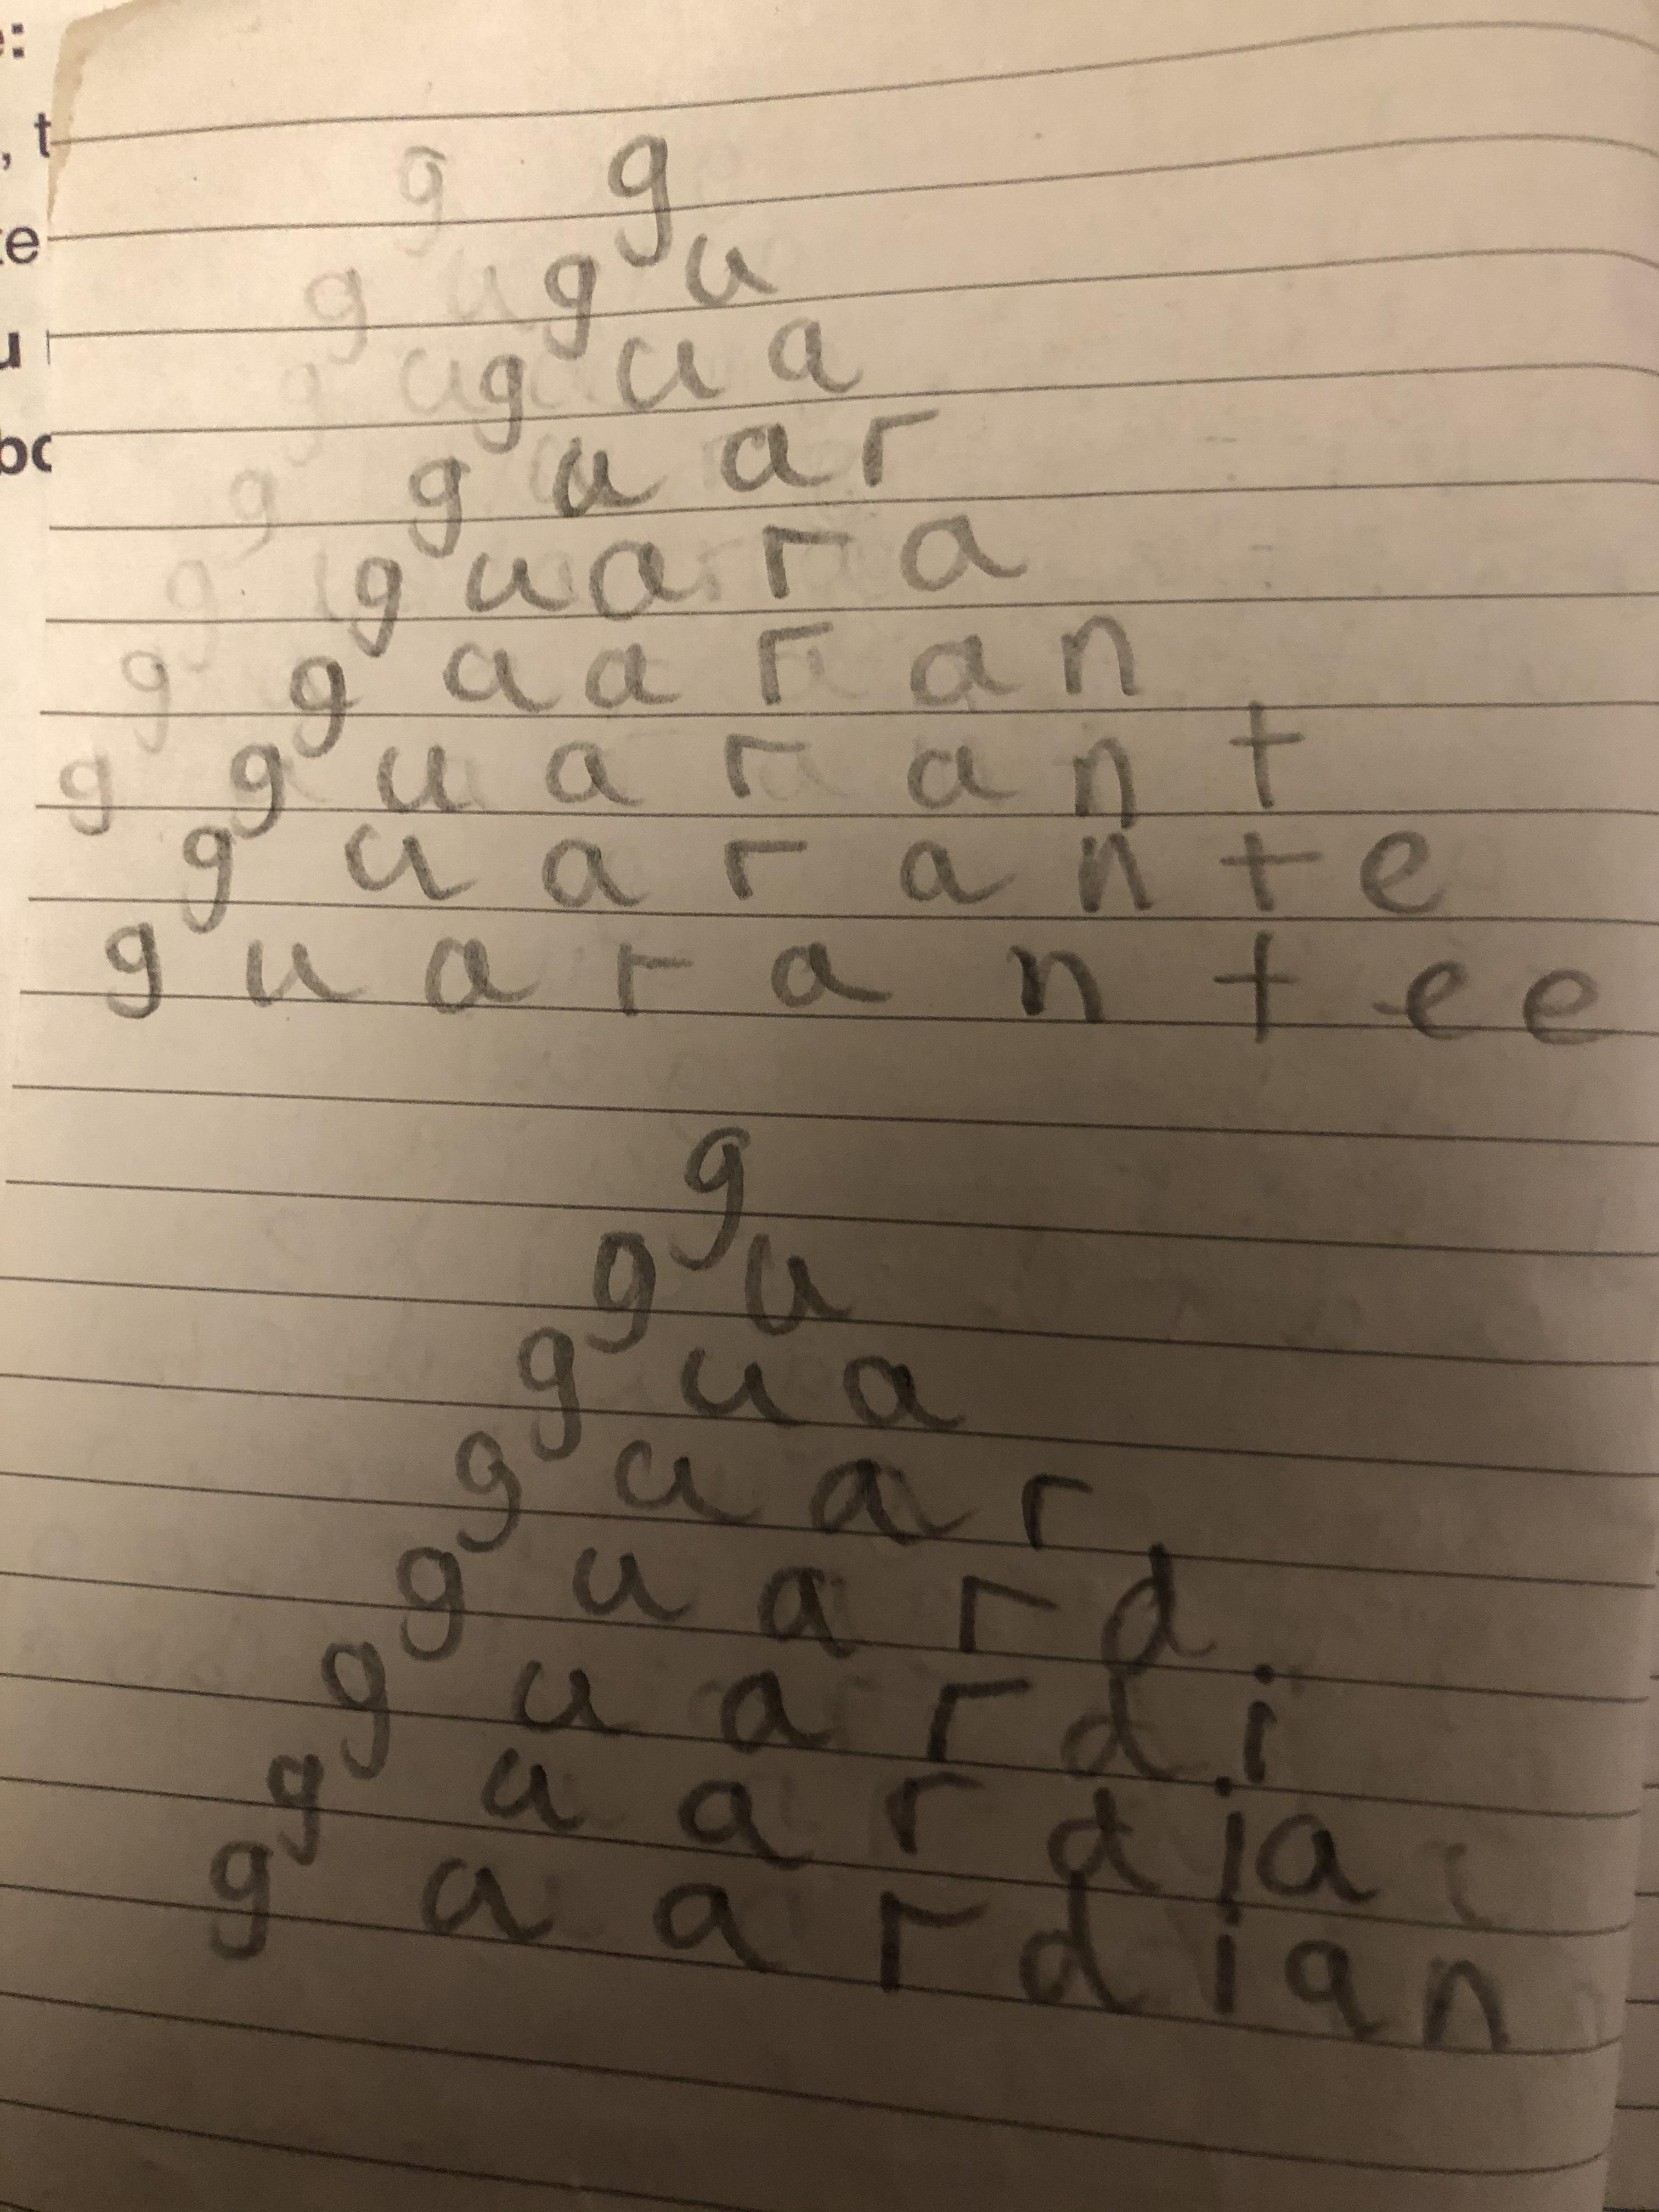 g
g u
g u a
g u a r
g u a r a
g u a r a n
g u a r a n t
g u a r a n t e
g u a r a n t e e
g
g u
g u a
g u a r
g u a r d
g u a r d i
g u a r d i a
g u a r d i a n